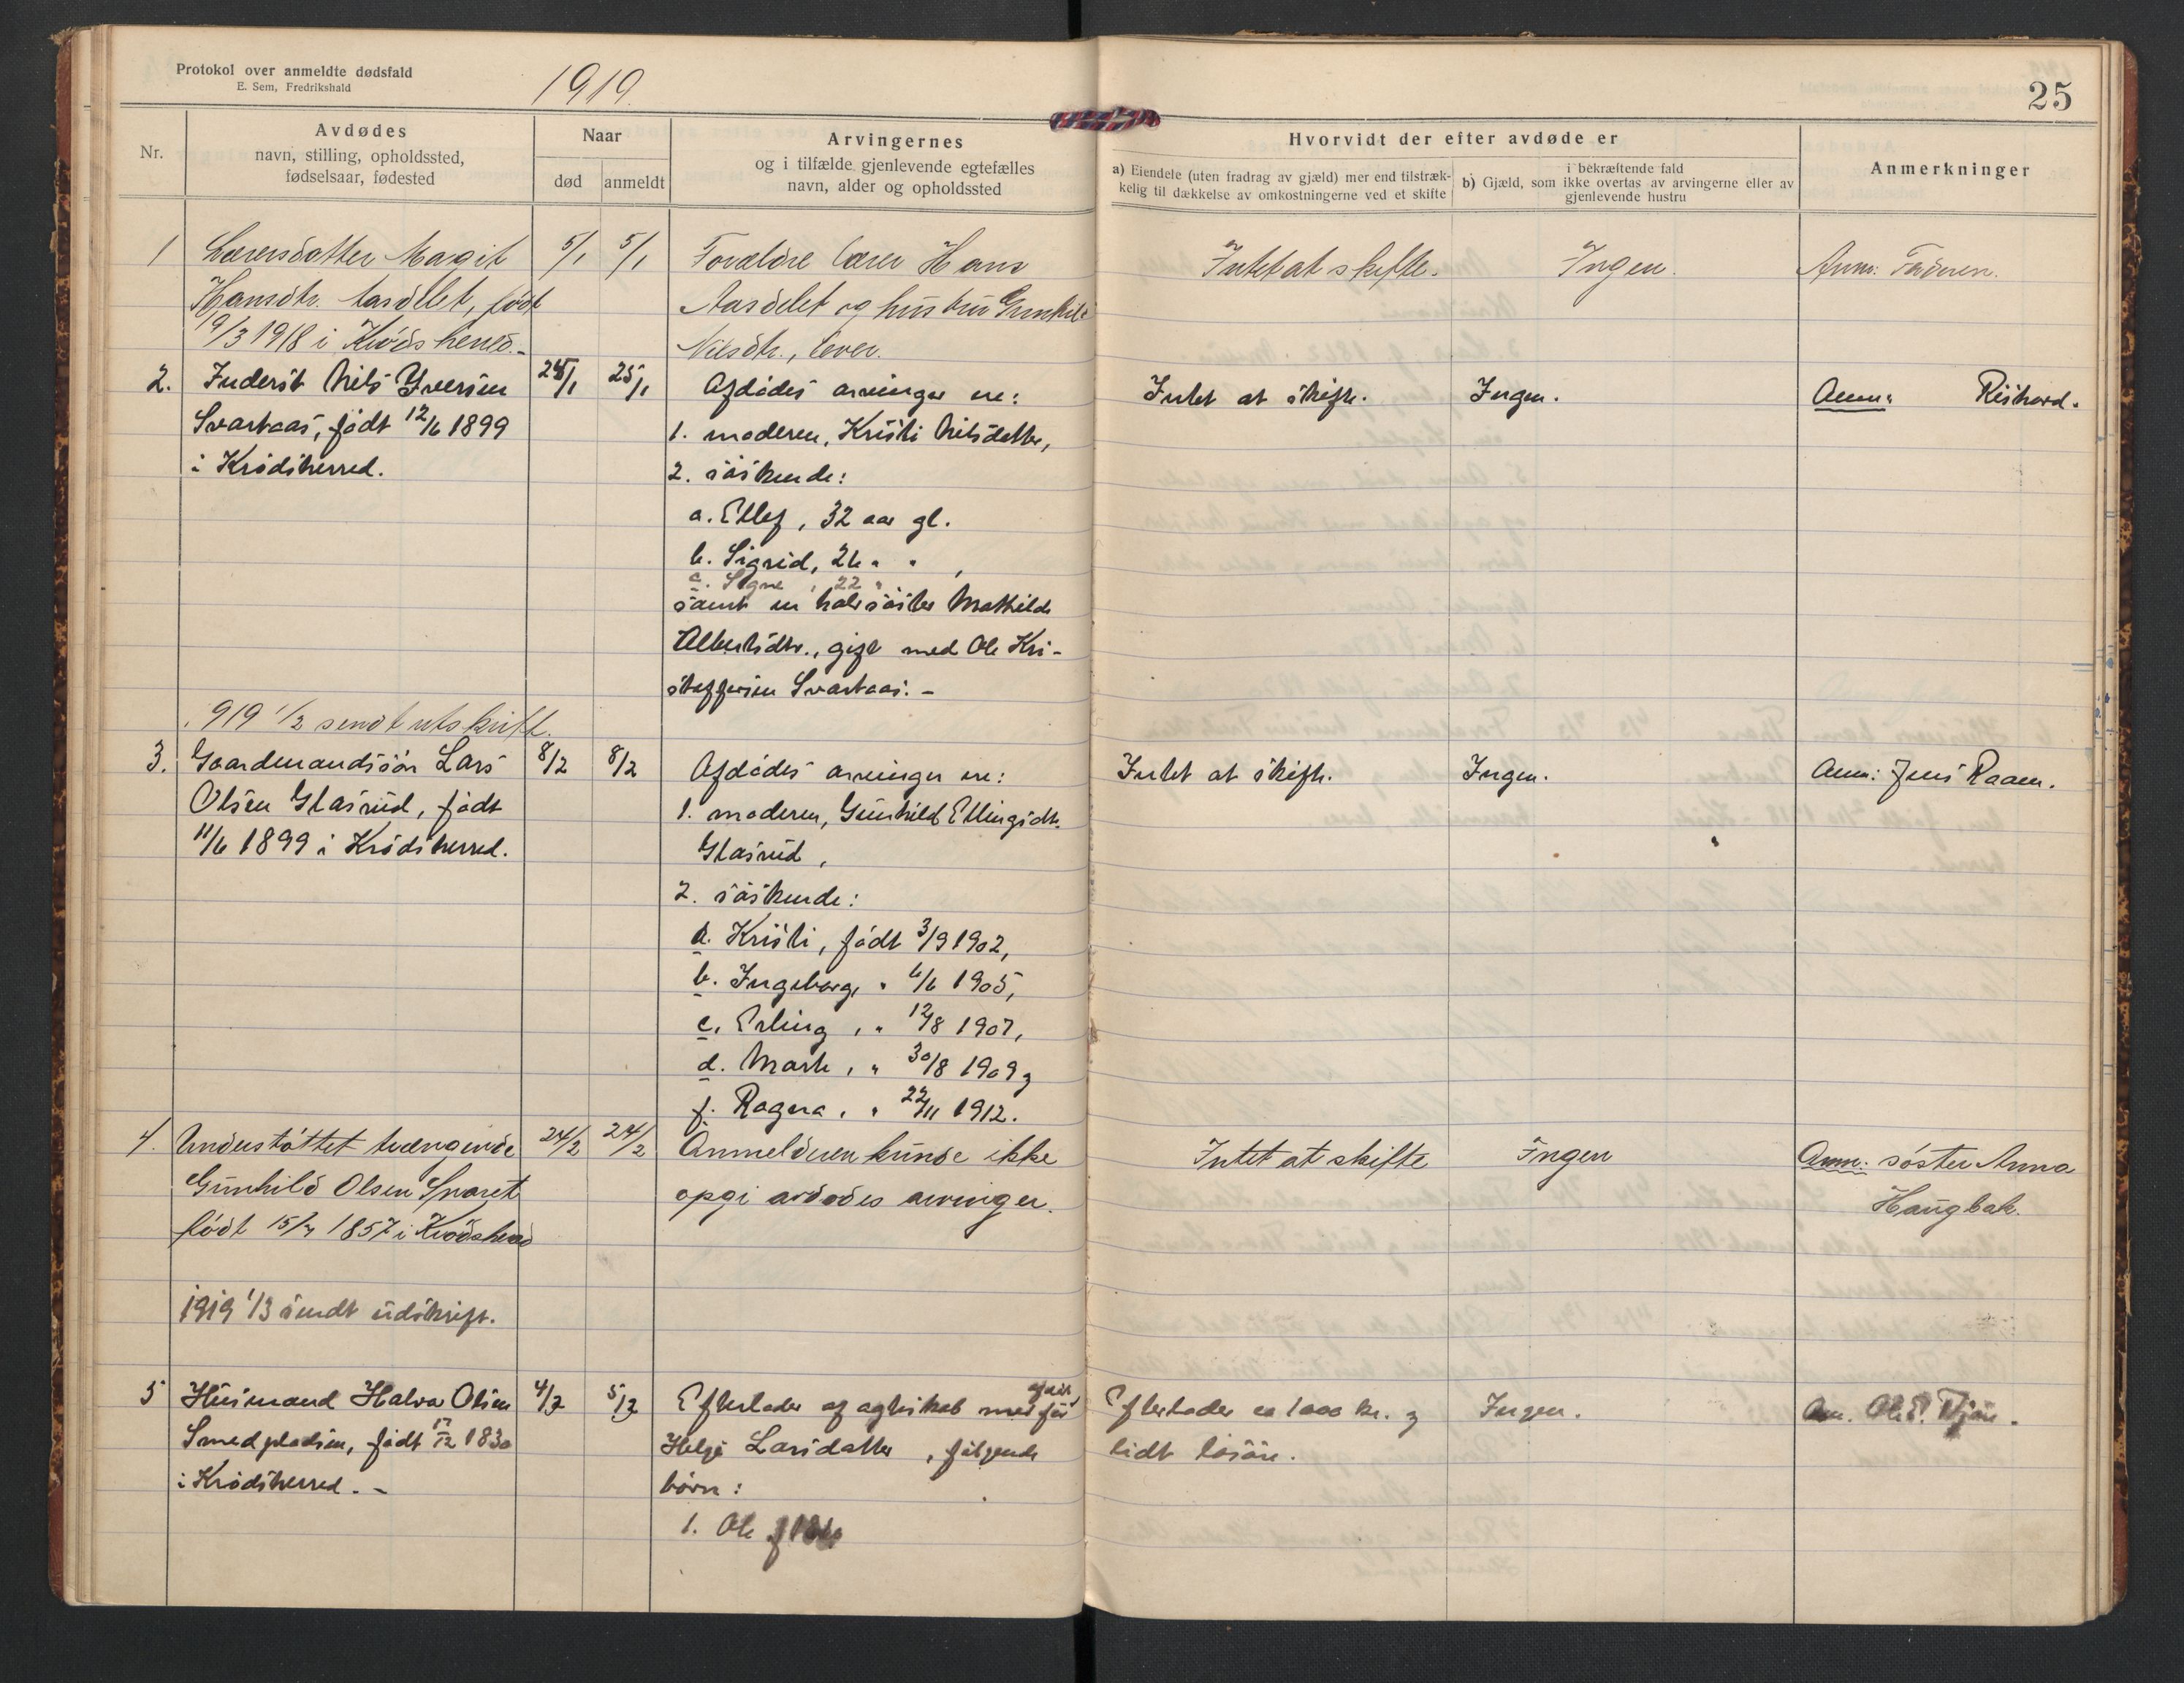 Protokol over anmeldte dødsfald
E. Sem, Fredrikshald
1919.
25
Nr.
Avdødes
navn, stilling, opholdssted,
fødselsaar, fødested
Naar
død
anmeldt
Arvingernes
og i tilfælde gjenlevende egtefælles
navn, alder og opholdssted
Hvorvidt der efter avdøde er
a) Eiendele (uten fradrag av gjæld) mer end tilstræk-
kelig til dækkelse av omkostningerne ved et skifte
i bekræftende fald
b) Gjæld, som ikke overtas av arvingerne eller av
gjenlevende hustru
Anmerkninger
1 Lærersdatter Margit 5/1 5/1 Forældre lærer Hans Intet at skifte. Ingen. Anm: Faderen.
Hansdtr. Aasdllet, født Aasdelet og hustru Gunhild
19/3 1918 i Krødsherred.- Nilsdtr., lever.
2. Inderst Nils Iversen 24/1 25/1 Afdødes arvinger ere: Intet at skifte. Ingen. Anm: Rishovd.
Svartaas, født 12/6 1899 1. moderen, Kristi Nilsdatter,
i Krødsherred. 2. søskende:
a. Ellef, 32 aar gl.
b. Sigrid, 26 " " ,
c. Signe , 22 "
samt en halvsøster Mathilde
Albertsdtr., gift med Ole Kri-
stoffersen Svartaas. -
1919 1/2 sendt utskrift.
3. Gaardmandssøn Lars 8/2 8/2 Afdødes arvinger ere: Intet at skifte. Ingen. Anm: Jens Raaen.
Olsen Glasrud, født 1. moderen, Gunhild Ellingsdtr.
11/6 1899 i Krødsherred. Glasrud,
2. søskende:
a. Kristi, født 3/9 1902,
b. Ingeborg, " 6/6 1905,
c. Erling , " 12/8 1907,
d. Marte , " 30/8 1909,
f. Ragna , " 22/11 1912.
4. Understøttet trængende 24/2 24/2 Anmelderen kunde ikke Intet at skifte Ingen Anm: søster Anna
Gunhild Olsen Snaret opgi avdødes arvinger. Haugbak.
født 15/4 1857 i Krødsherad
1919 1/3 sendt udskrift.
5 Husmand Halvor Olsen 4/3 5/3 Efterlader af ægteskab med Efterlader ca 1000 kr. og Ingen. Ole
Smedpladsen, født 17/12 1830 Helge Larsdatter, følgende lidt løsøre.
i Krødsherred. - børn:
1. Ole